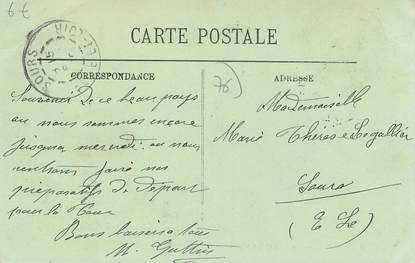 6 €
CARTE POSTALE
CORRESPONDANCE
ADRESSE
76
SOURS
Souvenir de ce beau pays
ou nous sommes encore
jusqu'a mercredi ou nous
rentrons faire nos
préparatifs de départ
pour la Tour
Bons baisers a tous
M.
Mademoiselle
Marie Thérèse Legallier
Sours
(E L)